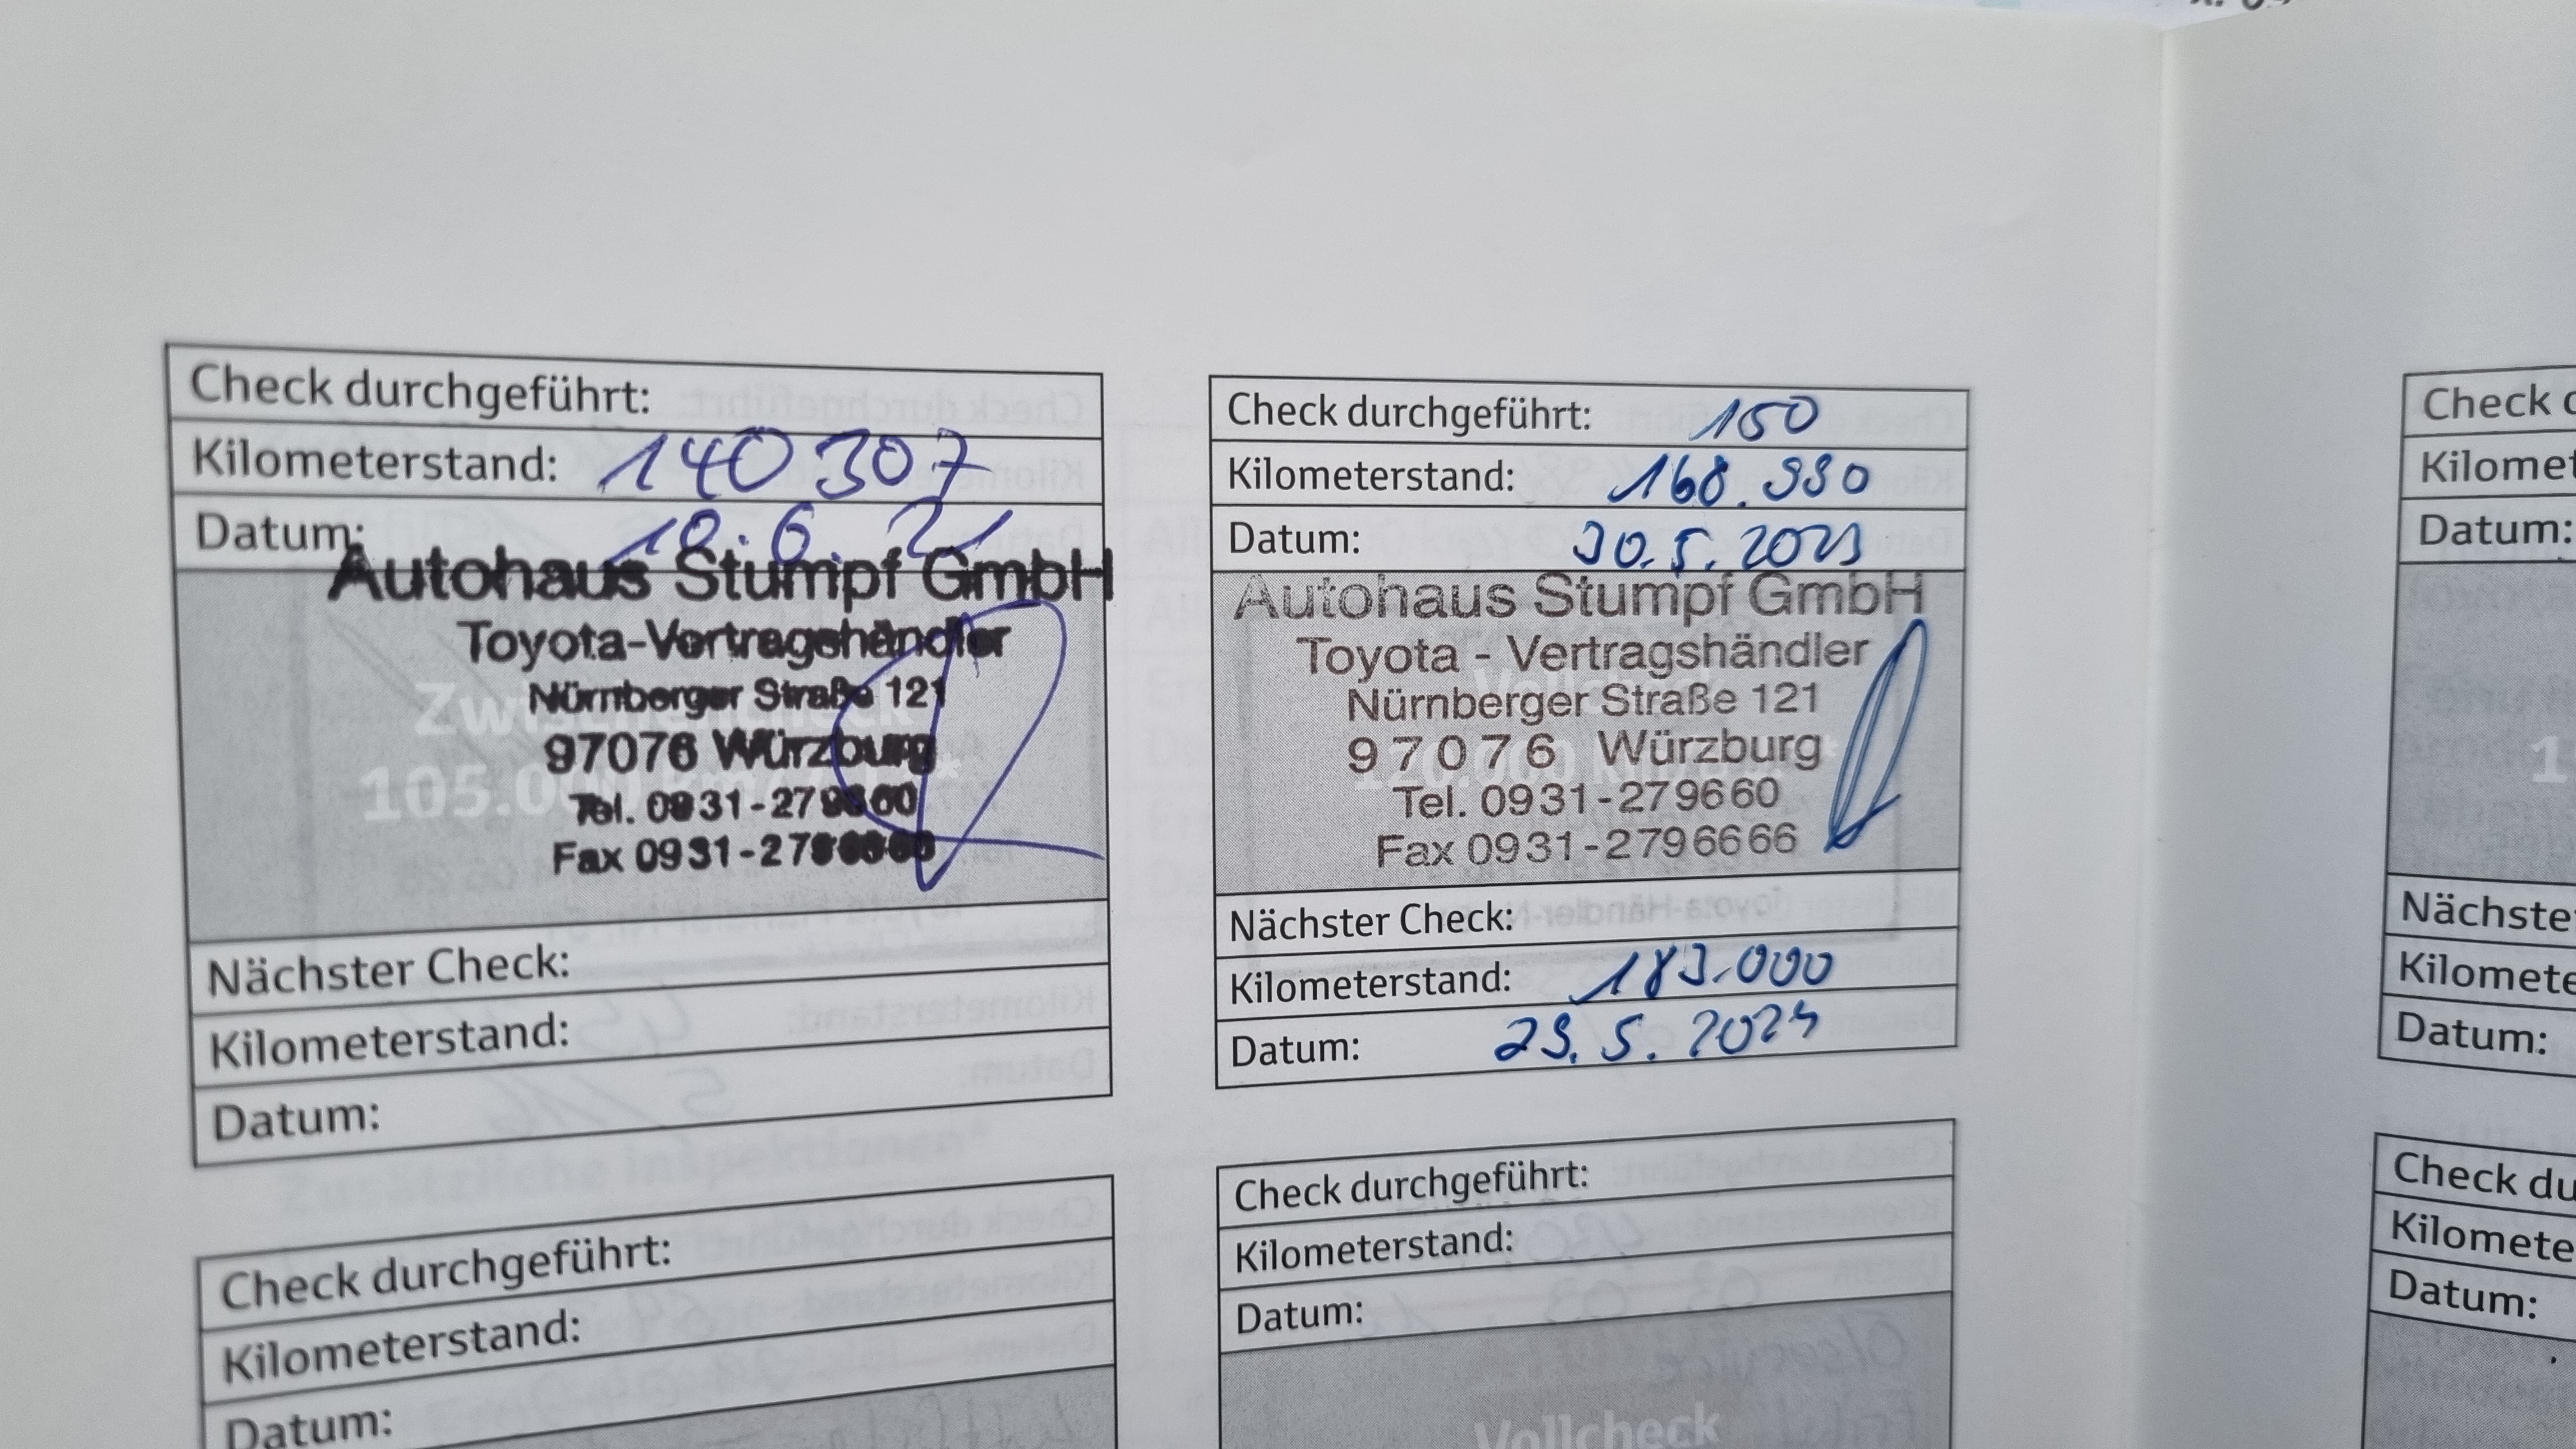 Check durchgeführt:
Kilometerstand: 140 307
Datum: 10.6.21
Autohaus Stumpf GmbH
Toyota-Vertragshändler
Nürnberger Straße 121
97076 Würzburg
Tel. 0931-279660
Fax 0931-2796666
Zwischencheck
105.000 km/
Nächster Check:
Kilometerstand:
Datum:
Check durchgeführt:
Kilometerstand:
Datum:
Check durchgeführt: 150
Kilometerstand: 168.990
Datum: 30.5.2023
Autohaus Stumpf GmbH
Toyota - Vertragshändler
Nürnberger Straße 121
97076 Würzburg
Tel. 0931-279660
Fax 0931-2796666
Vollcheck
120.000 km/
Nächster Check:
Kilometerstand: 183.000
Datum: 29.5.2024
Check durchgeführt:
Kilometerstand:
Datum:
Vollcheck
Check d
Kilomet
Datum:
Nächste
Kilomete
Datum:
Check du
Kilomete
Datum: